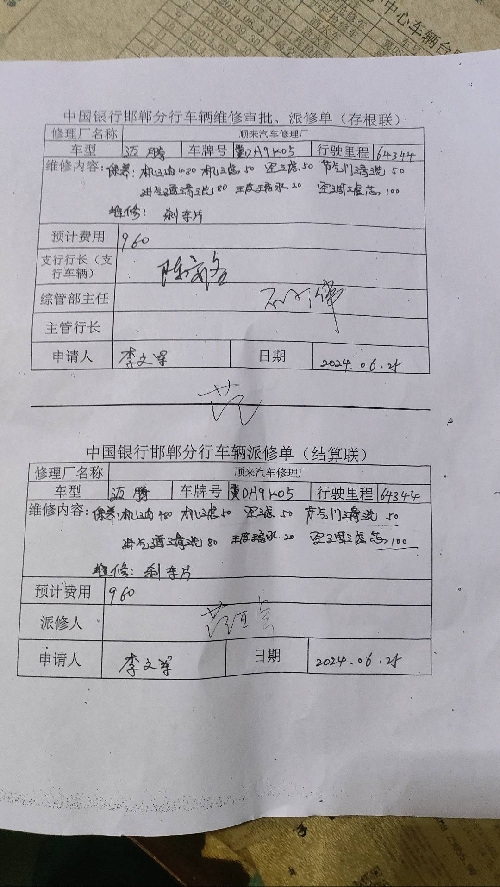 中心车辆台
中国银行邯郸分行车辆维修审批、派修单（存根联）
修理厂名称 顺来汽车修理厂
车型 迈腾 车牌号 冀DH9K05 行驶里程 64344
维修内容：保养：机油480 机滤40 空滤50 节气门清洗50
进气道清洗80 玻璃水20 空调滤芯100
维修：刹车片
预计费用 960
支行行长（支行车辆）
综管部主任
主管行长
申请人 李文军 日期 2024.06.25
中国银行邯郸分行车辆派修单（结算联）
修理厂名称 顺来汽车修理
车型 迈腾 车牌号 冀DH9K05 行驶里程 64344
维修内容：保养：机油480 机滤40 空滤50 节气门清洗50
进气道清洗80 玻璃水20 空调滤芯100
维修：刹车片
预计费用 960
派修人
申请人 李文军 日期 2024.06.25